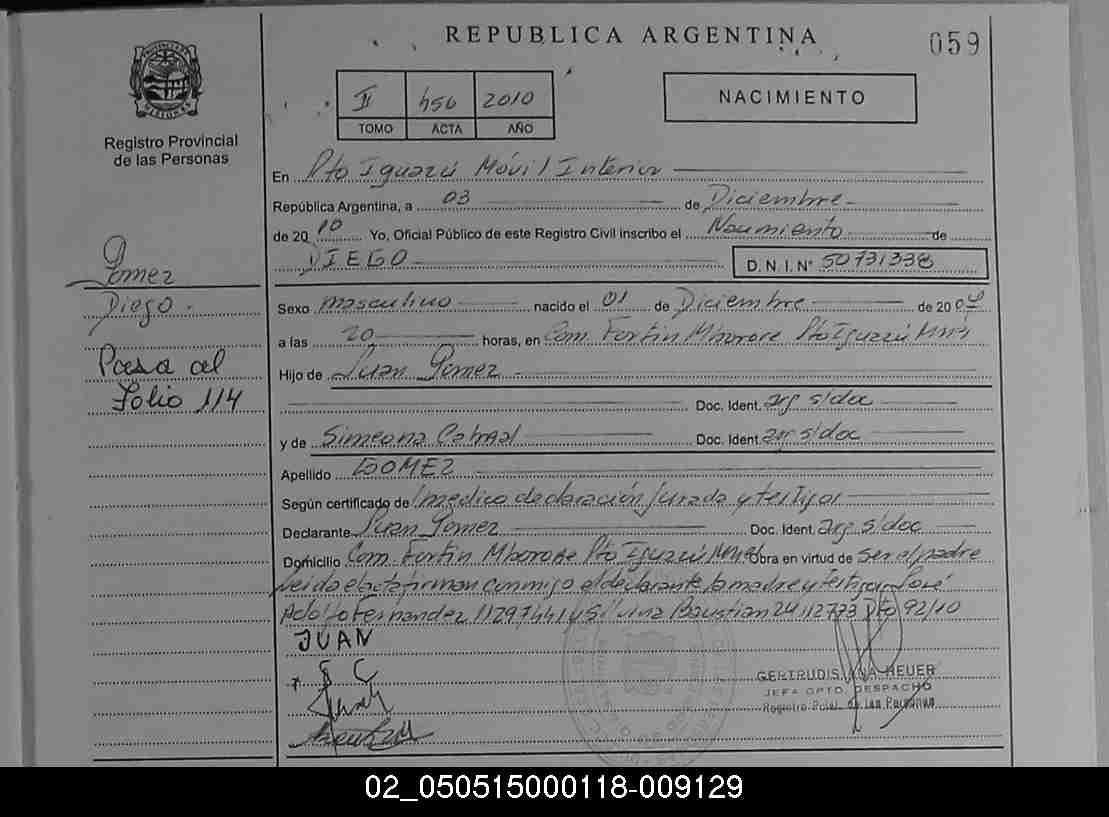 REPUBLICA ARGENTINA
059
II 456 2010
TOMO ACTA AÑO
NACIMIENTO
Registro Provincial
de las Personas
En Pto Iguazú Móvil Interior
República Argentina, a 03 de Diciembre
de 2010 Yo, Oficial Público de este Registro Civil inscribo el Nacimiento de
DIEGO D.N.I.N° 50731338
Gomez
Diego.
Pasa al
Folio 114
Sexo masculino nacido el 01 de Diciembre de 2009
a las 20 horas, en Com. Fortin Mborore Pto Iguazú Mnes
Hijo de Juan Gomez
Doc. Ident. arg s/doc
y de Simeona Cabral Doc. Ident. arg s/doc
Apellido GOMEZ
Según certificado de medico declaración jurada y testigos
Declarante Juan Gomez Doc. Ident. arg s/doc
Domicilio Com. Fortin Mborore Pto Iguazú Mnes Obra en virtud de ser el padre
Leida el acta firman conmigo el declarante, la madre y testigos José
Adolfo Fernandez 11297441 y Silvina Baustian 24112773 Dto 92/10
JUAN
S C
GERTRUDIS ANA HEUER
JEFA DPTO. DESPACHO
Registro Pcial. de las Personas
02_050515000118-009129